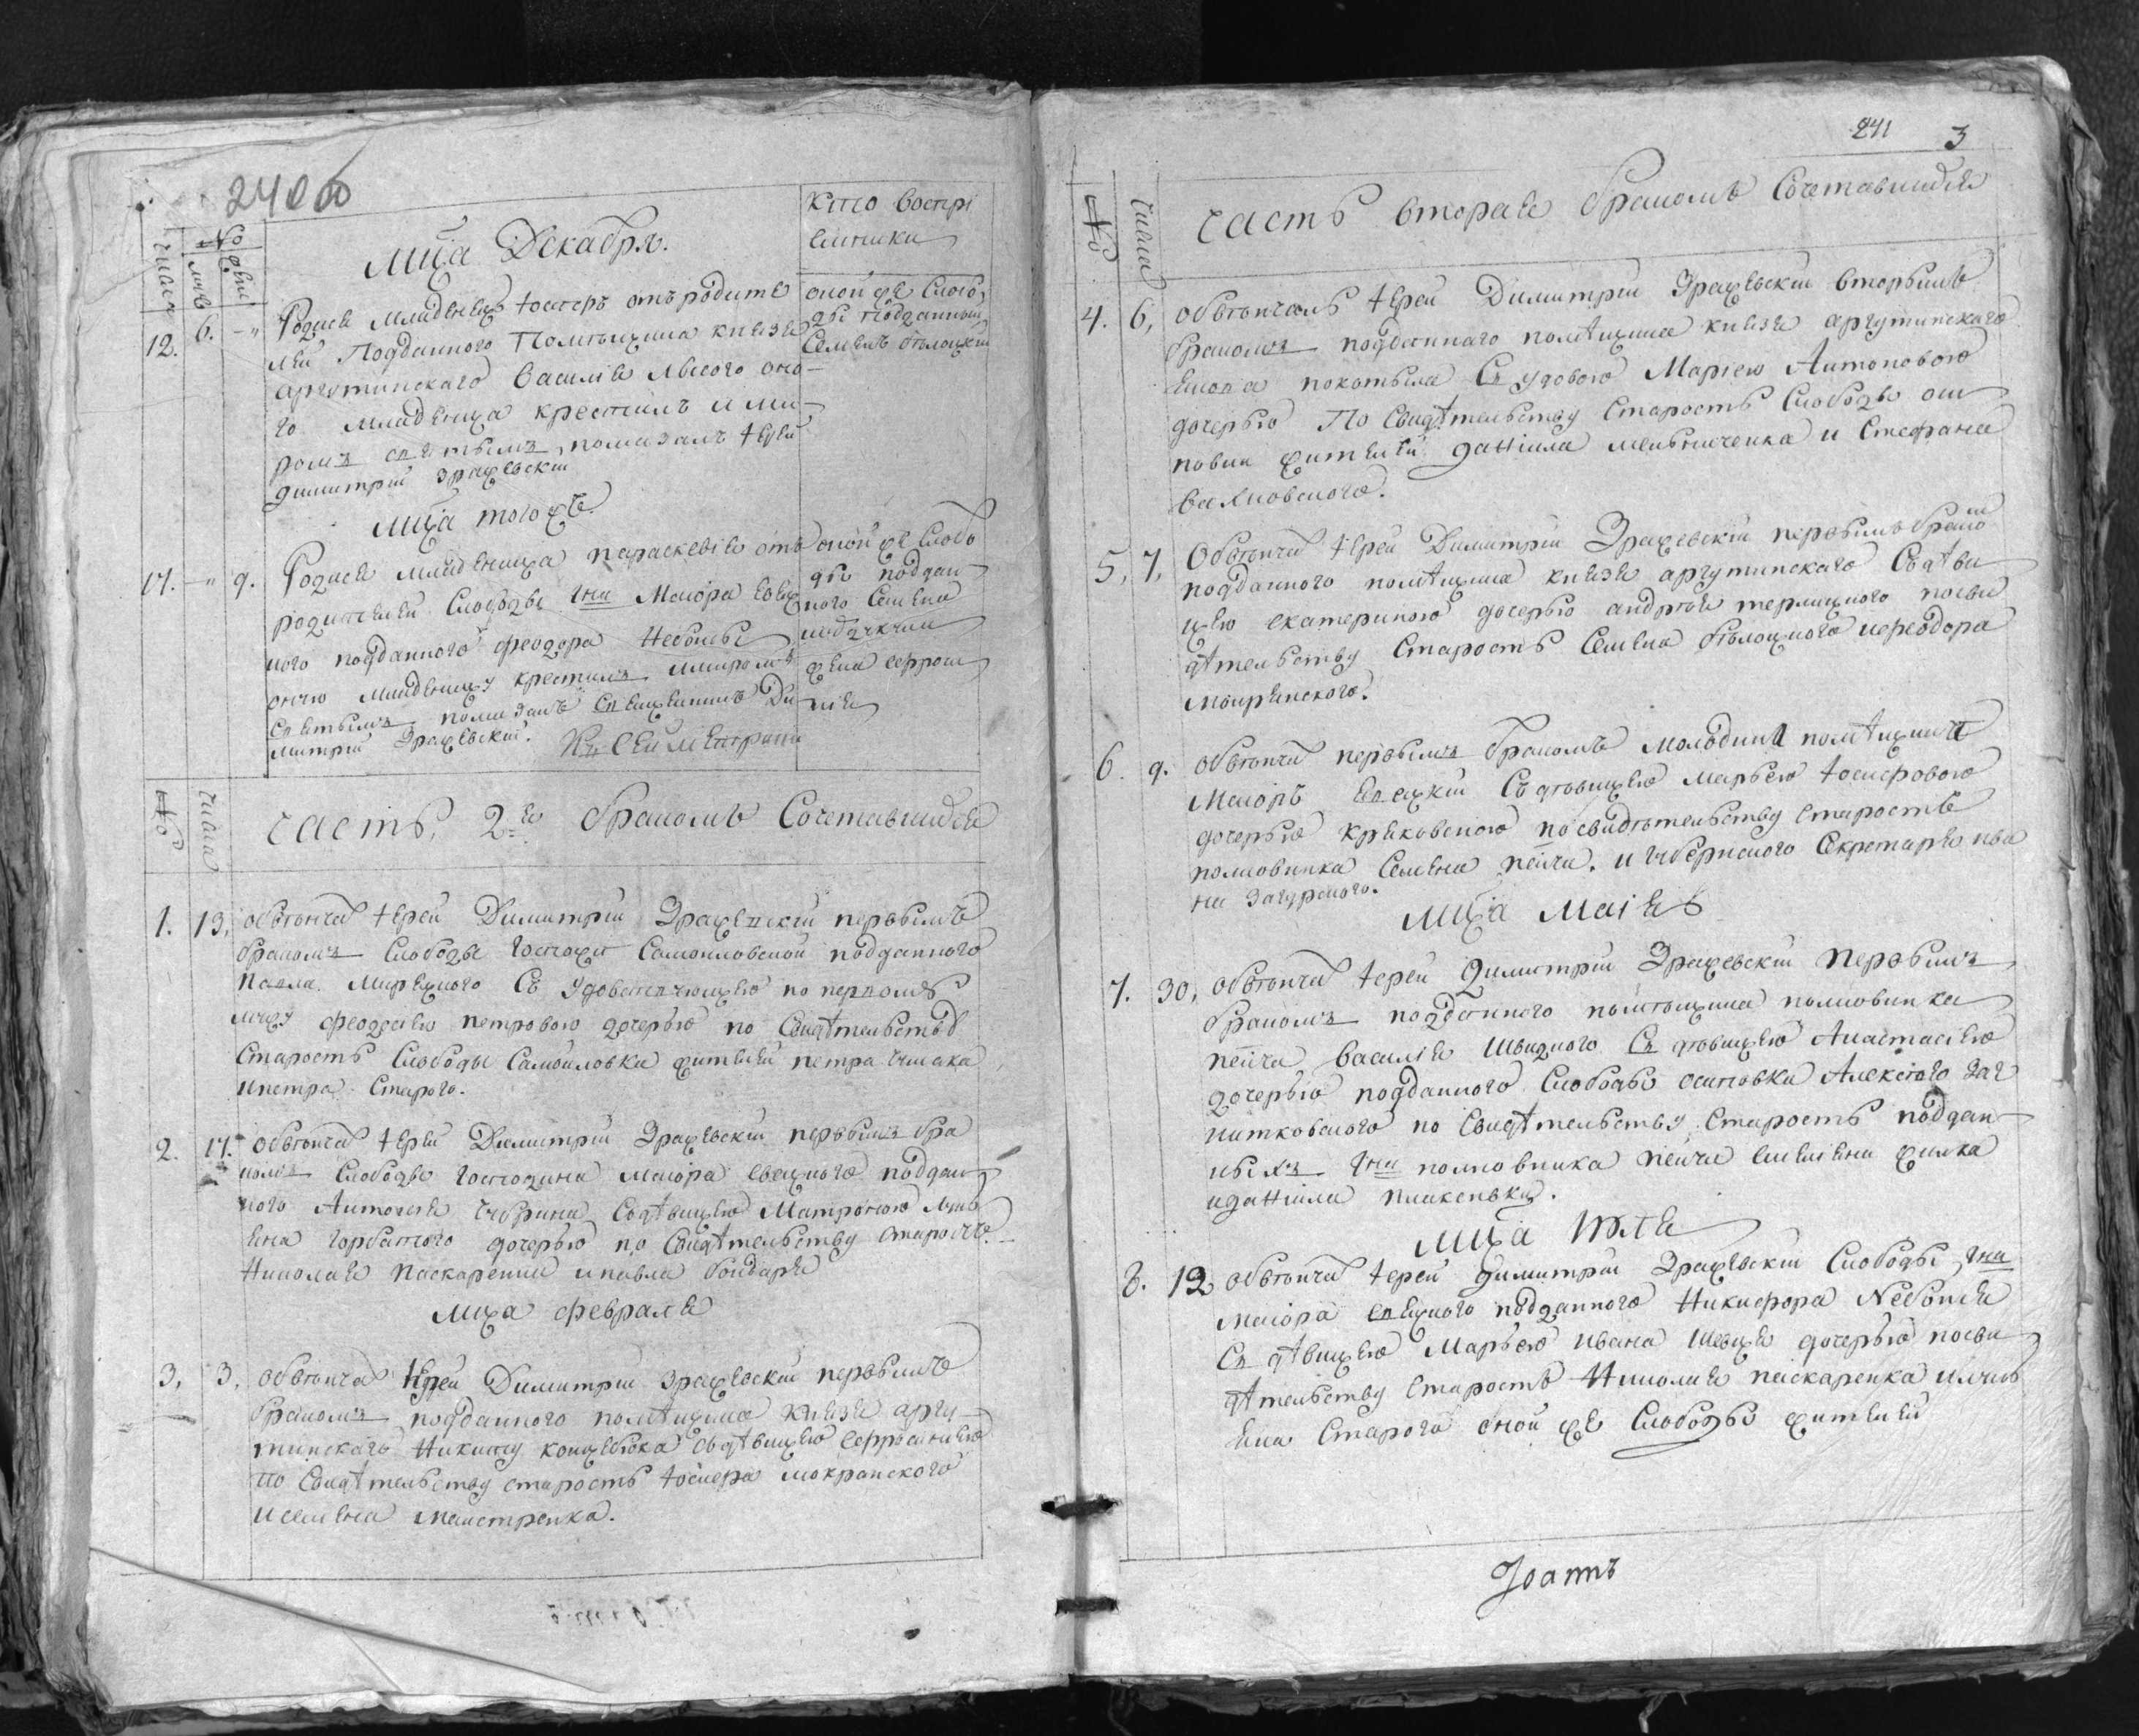 240об
№ числа
муж
женс
мца Декабря.
Кто воспрі
емники
12. 6. - " Родися младенецъ Іосифъ отъ родите
лей подданного помѣщика князя
аргутинскаго Василія лысого оно
го младенца крестилъ и ми
ромъ святымъ помазалъ Іерей
Димитрій Эражевскій
оной же слобо
ды подданный
Семенъ бѣлоцкій
мца тогожъ
17. - " 9. Родися младеница параскевія отъ
родителей слободы Гна Маіора
ного подданного феодора Небоьы
оную младеницу крестилъ миромъ
святымъ помазалъ священникъ Ди
митрій Эражевскій.
оной же слобо
ды поддан
ного Семена
жена еффроси
нія
№ числа
часть, 2я бракомъ Сочетавшихся
1. 13, обвѣнча Іерей Димитрій Эражевскій первымъ
бракомъ слободы госпожи Самойловской подданного
павла Мирецкого съ удовствующею по первомъ
мужу феодосіею петровою дочерью по свидѣтельству
старость слободы Самойловка жителей петра
ипетра Старого.
2. 17. обвѣнча Іерей Димитрій Эражевскій первымъ бра
комъ слободы господина маіора поддан
ного Антонія Чуприна Содѣвицею Матроною
горбатого дочерью по свидѣтельству старость
Николая паскаренка ипавла бондаря
мца февраля
3, 3, обвѣнча Іерей Димитрій Эражевскій первымъ
бракомъ подданного помѣщика князя аргу
тинскаго Никиту коцюбока съдѣвицею еффросиніею
по свидѣтельству старость Іосифа мокранского
исемена маистренка.
241 3
№ числа
часть вторая бракомъ Сочетавшихся
4. 6, обвѣнчалъ Іерей Димитрій Эражевскій вторымъ
бракомъ подданнаго помѣщика князя аргутинскаго
якова покотыла съ удовою Маріею Антоновою
дочерью по свидѣтельству старость слободы оси
повки жителей даніила мельниченка и Стефана
вахновского.
5, 7, обвѣнча Іерей Димитрій Эражевскій первымъ бракомъ
подданного помѣщика князя аргутинскаго Съдѣви
цею екатериною дочерью андрѣя терлицкого посви
дѣтельству старость Семена бѣлоцкого ифеодора
мокрянского.
6. 9. обвѣнча первымъ бракомъ помѣщикъ
Маіоръ съ дѣвицею марьею Іосифовою
дочерью кряковскою по свидѣтельству старость
полковника Семена пейча. и губернского секретаря ива
на Загурского.
мца маія
7. 30, обвѣнча Іерей Димитрій Эражевскій первымъ
бракомъ подданного помѣщика полковника
пейча Василія Швидкого съ дѣвицею Анастасіею
дочерью подданного слободы осиповки Алексѣя заг
нитковского по свидѣтельству старость поддан
ныхъ Гна полковника пейча жилка
иданіила плаксивки.
мца Іюля
8. 12 обвѣнча Іерей димитрій Эражевскій слободы Гна
маіора подданного Никифора Nебоня
съ дѣвицею Марьею ивана шевця дочерью посви
дѣтельству старость Николая паскаренка
Старого оной же слободы жителей
Іоаннъ